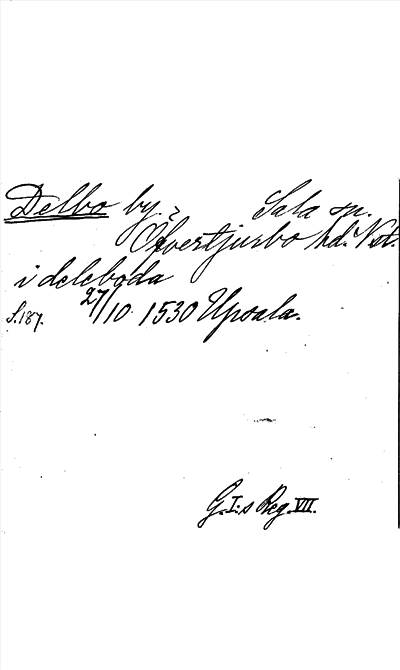 Delbo by. Sala sn.
Öfvertjurbo hd. Vst.
i deleboda
S.187. 27/10. 1530 Upsala.
G.I:s Reg. VII.